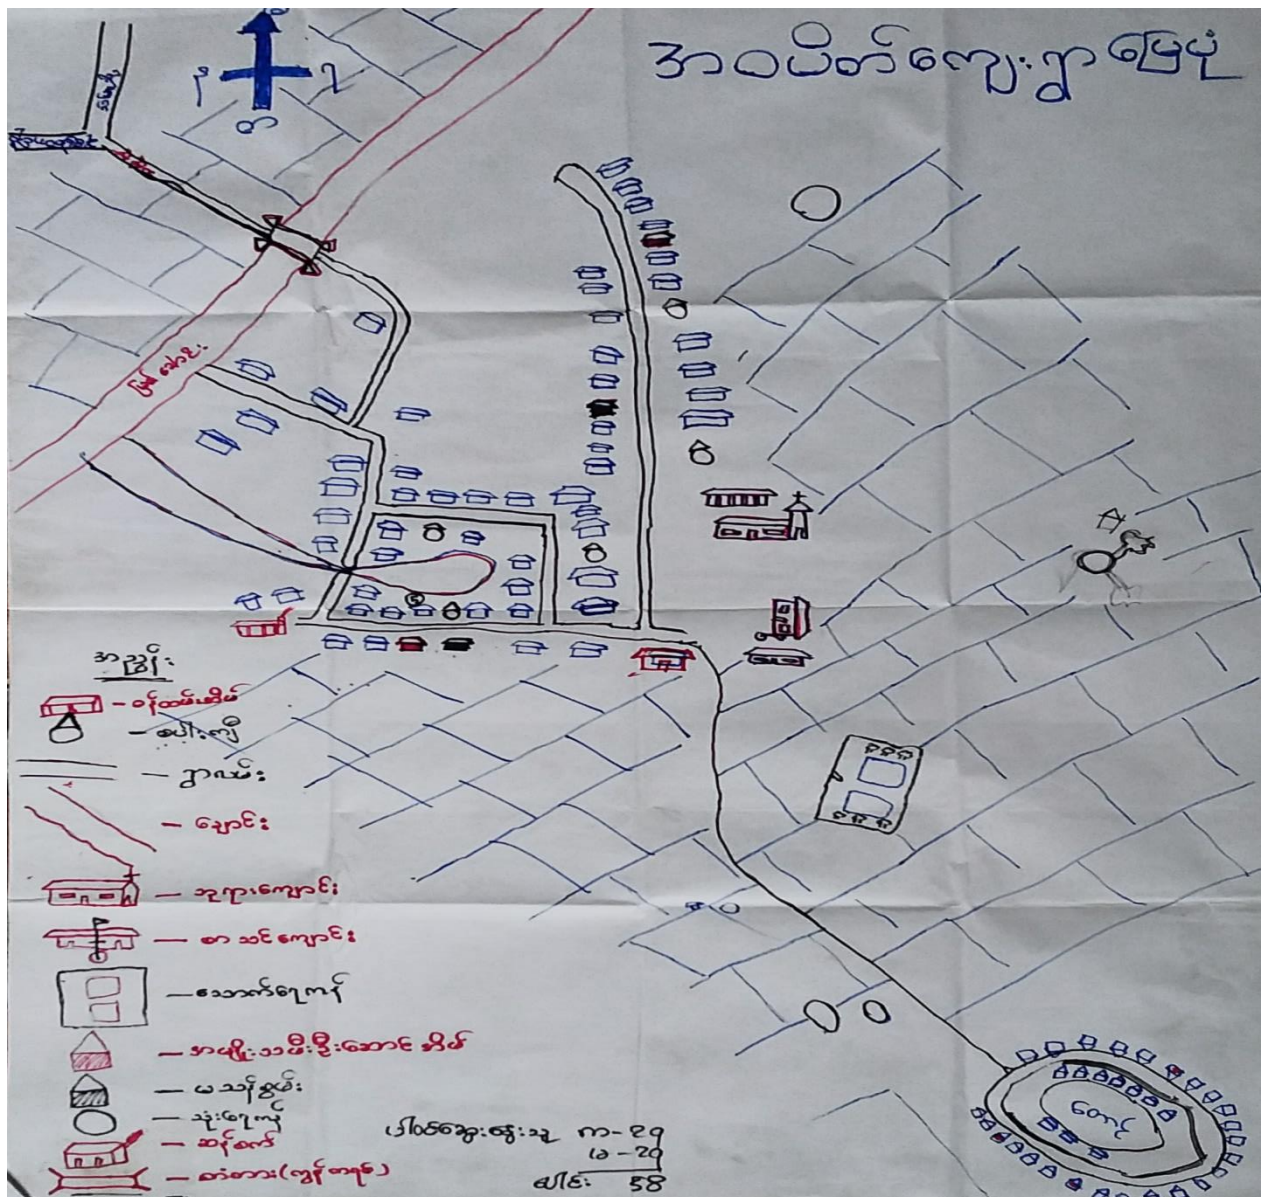 အဝပိတ်ကျေးရွာ မြေပုံ
မ
န
ရ
တ
မြစ်ချောင်း
တောင်
အညွှန်း
- ဝန်ထမ်းအိမ်
- စပါးကျီ
- ရွာလမ်း
- ချောင်း
- ဘုရားကျောင်း
- စာသင်ကျောင်း
- သောက်ရေကန်
- အမျိုးသမီးဦးဆောင်အိမ်
- မသန်စွမ်း
- သုံးရေကန်
- ဆန်စက်
- တံတား(ကွန်ကရစ်)
ပါဝင်ဆွေးနွေးသူ ကျား-၂၉
မ-၂၉
ပေါင်း 58